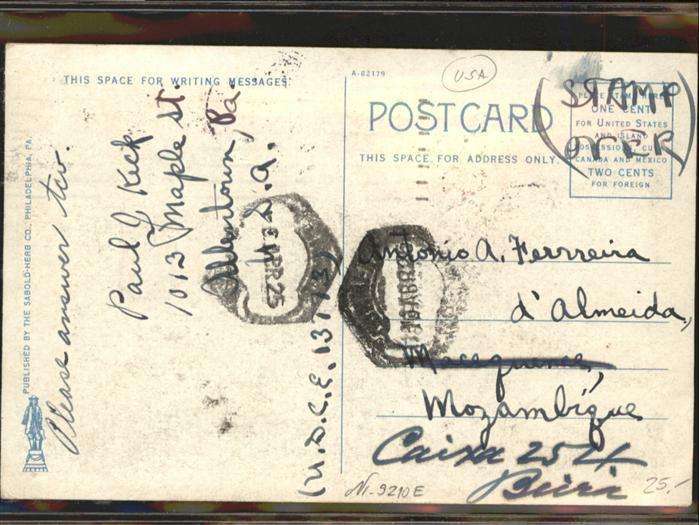 THIS SPACE FOR WRITING MESSAGES.
A-82179
USA
POSTCARD
THIS SPACE FOR ADDRESS ONLY.
(STAMP
OVER)
ONE CENT
FOR UNITED STATES
AND ISLAND
CANADA AND MEXICO
TWO CENTS
FOR FOREIGN
PUBLISHED BY THE SABOLD-HERB CO., PHILADELPHIA, PA.
Please answer two.
Paul J Kick
1013 Maple St.
Allentown, Pa.
U.S.A.
(U.D.C.E. 13173)
Antonio A. Ferrreira
d'Almeida,
Macequence,
Mozambique
Caixa 254
Beira
Nr-9210E
25.-